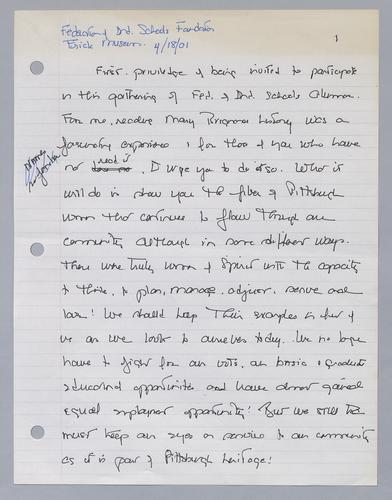 Federation of Ind. Schools Foundation
Frick Museum. 4/18/01
1
First, privilege of being invited to participate
in this gathering of Fed. of Ind Schools Alumnae.
For me, reading Mary Brignano history was a
fascinating experience & for those of you who have
not read it, I urge you to do so. What it
will do is show you the fiber of Pittsburgh
women that continues to flow through our
community although in some different ways.
These were truly women of spirit with the capacity
to think, to plan, manage, adjust, serve and
last! We should keep their examples in front of
us as we look to ourselves today. We no longer
have to fight for our vote, our basic & graduate
educational opportunities and have almost gained
equal employment opportunity! But we still
must keep our eyes on service to our community
as it is part of Pittsburgh heritage!